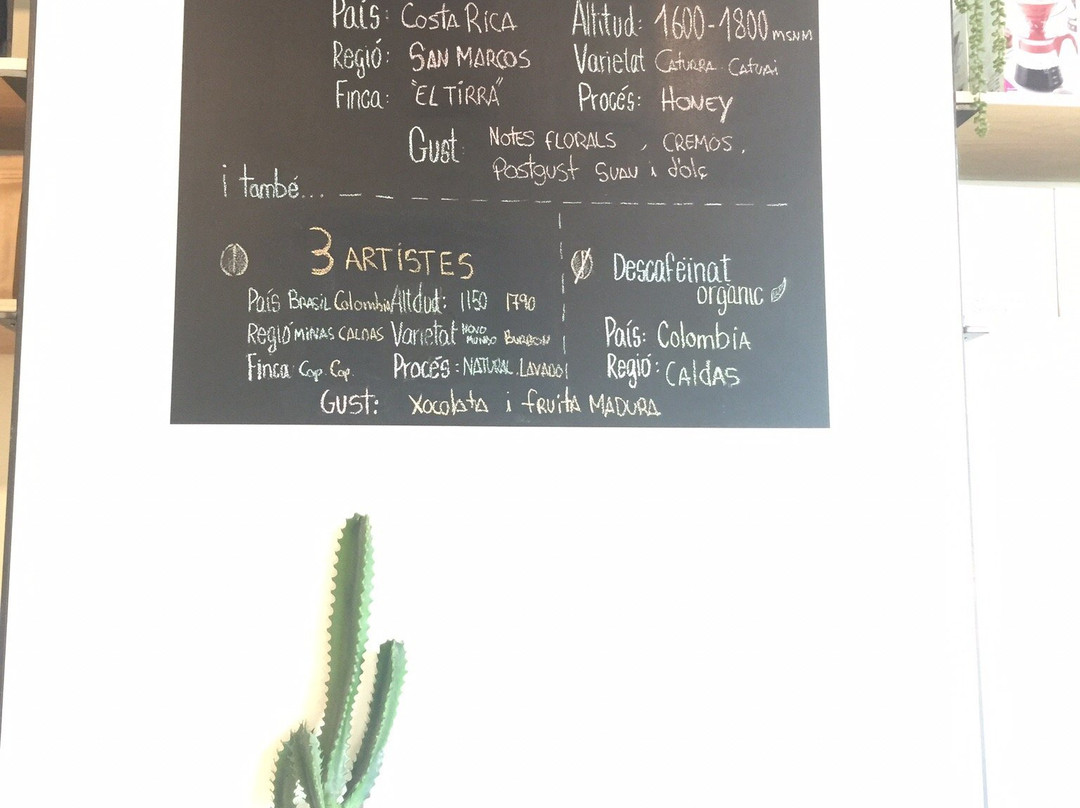 País: COSTA RICA Altitud: 1600-1800 MSNM
Regió: SAN MARCOS Varietat CATURRA CATUAI
Finca: "EL TIRRÀ" Procés: HONEY
Gust: NOTES FLORALS, CREMÓS,
Postgust SUAU i dolç
i també...
3 ARTÍSTES
País BRASIL Colombia Altitud: 1150 1790
Regió MINAS CALDAS Varietat NOVO MUNDO BURBON
Finca Cop. Cop. Procés: NATURAL. LAVADO
GUST: XOCOLATA i FRUITA MADURA
Descafeïnat
orgànic
País: Colombia
Regió: CALDAS